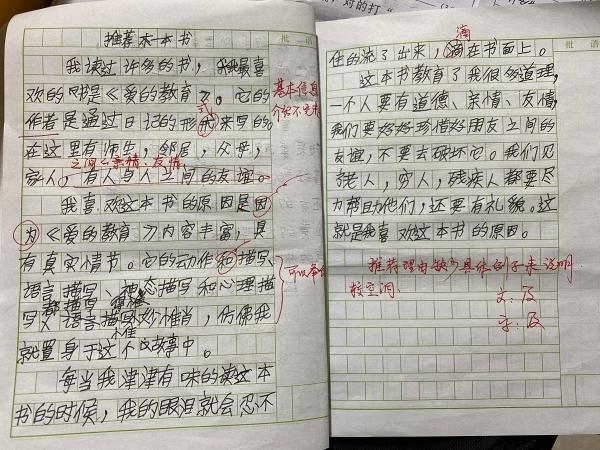 推荐一本书
我读过许多的书，我最喜
欢的书是《爱的教育》。它的
作者是通过日记的形式来写的。
在这里有师生，邻居，父母，
之间亲情、友情
家人，有人与人之间的友谊。
我喜欢这本书的原因是因
为《爱的教育》内容丰富，具
有真实情节。它的动作和描写、
语言描写、神态描写和心理描
写，语言描写惟妙惟肖，仿佛我
就置身于这个故事中。
每当我津津有味的读这本
书的时候，我的眼泪就会忍不
基本信息
介绍不完整
可以举例
住的流了出来，滴在书面上。
滴
这本书教育了我很多道理，
一个人要有道德、亲情、友情，
我们要好好珍惜好朋友之间的
友谊，不要去破坏它。我们见
老人，穷人，残疾人都要尽
力帮助他们，还要有礼貌。这
就是我喜欢这本书的原因。
推荐理由缺少具体例子来说明，
较空洞。
文：及
字：及
批语
批语